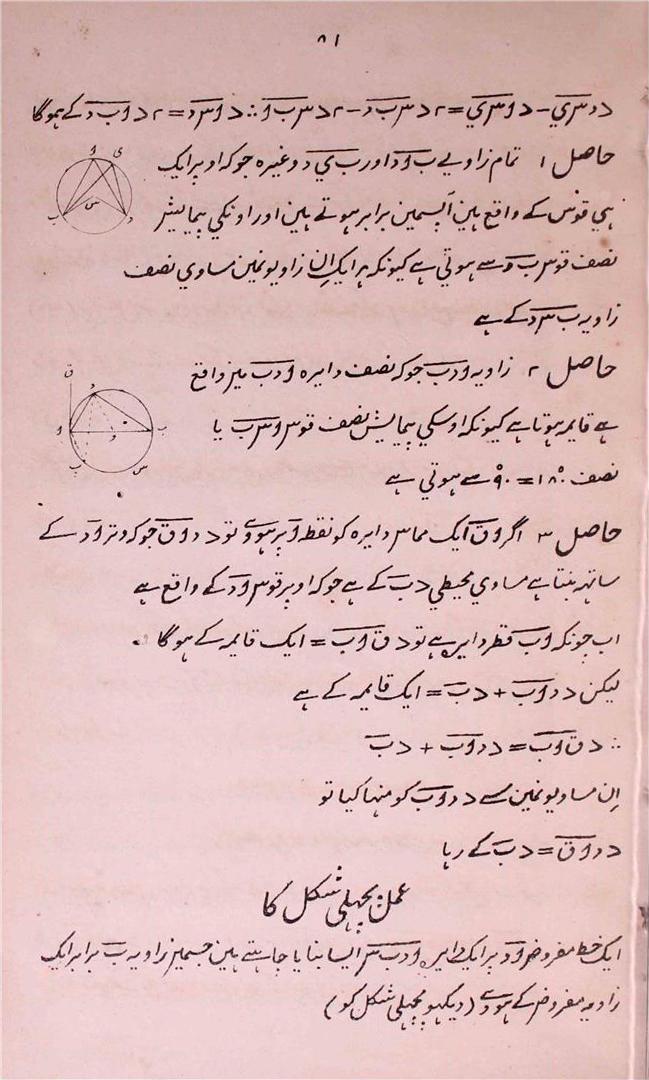 ٨١
د د س ي - د ا س ي = ٢ د س ب د - ٢ د س ب ا ∴ د ا س د = ٢ د ا ب د کے ہوگا
حاصل ١ تمام زاویے ب ا د اور ب ي د وغیرہ جوکہ اوپر ایک
ہي قوس کے واقع ہین آپسمین برابر ہوتے ہین اور اونکي پیمایش
نصف قوس ب د سے ہوتي ہے کیونکہ ہر ایک اِن زاویونمین مساوي نصف
زاویہ ب س د کے ہے
حاصل ٢ زاویہ ا د ب جوکہ نصف دایرہ ا د ب مین واقع
ہے قایمہ ہوتا ہے کیونکہ اوسکي پیمایش نصف قوس ا س ب یا
نصف ١٨٠° = ٩٠° سے ہوتي ہے
حاصل ٣ اگر ا ق ایک مماس دایرہ کو نقطہ ا پر ہووے تو د د ا ق جوکہ وتر ا د کے
ساتھہ بنتا ہے مساوي محیطي د ب کے ہے جوکہ اوپر قوس ا د کے واقع ہے
اب چونکہ ا ب قطر دایرہ ہے تو د ق ا ب = ایک قایمہ کے ہوگا
لیکن د د ا ب + د ب = ایک قایمہ کے ہے
∴ د ق ا ب = د د ا ب + د ب
اِن مساویونمین سے د د ا ب کو منہا کیا تو
د د ا ق = د ب کے رہا
عمل پچھلي شکل کا
ایک خط مفروض ا د پر ایک دایرہ ا د ب س ایسا بنایا چاہتے ہین جسمین زاویہ ب برابر ایک
زاویہ مفروض کے ہووے (دیکھو پچھلي شکل کو)